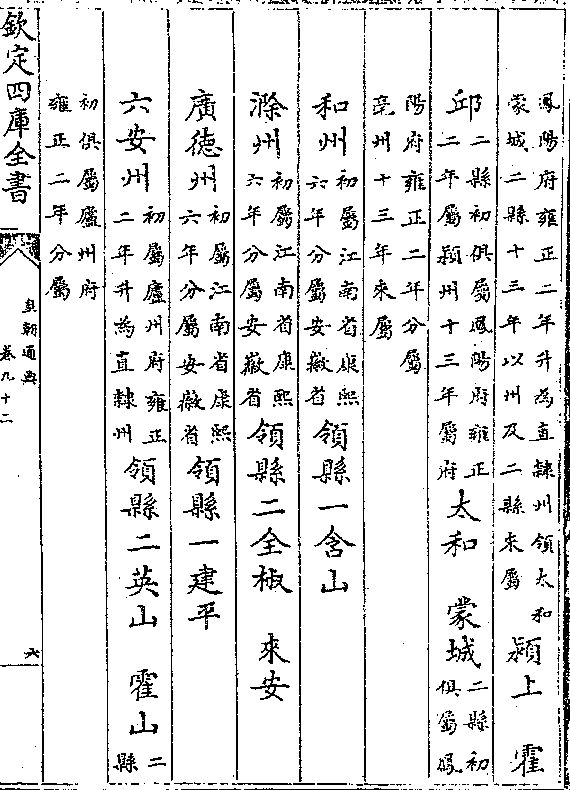 鳳陽府雍正二年升為直隸州領太和
蒙城二縣十三年以州及二縣來屬
潁上 霍
邱
二縣初俱屬鳳陽府雍正
二年屬潁州十三年屬府
太和 蒙城
二縣初
俱屬鳳
陽府雍正二年分屬
亳州十三年來屬
和州
初屬江南省康熙
六年分屬安徽省
領縣一含山
滁州
初屬江南省康熙
六年分屬安徽省
領縣二全椒 來安
廣德州
初屬江南省康熙
六年分屬安徽省
領縣一建平
六安州
初屬廬州府雍正
二年升為直隸州
領縣二英山 霍山
二
縣
初俱屬廬州府
雍正二年分屬
欽定四庫全書
皇朝通典
卷九十二
六